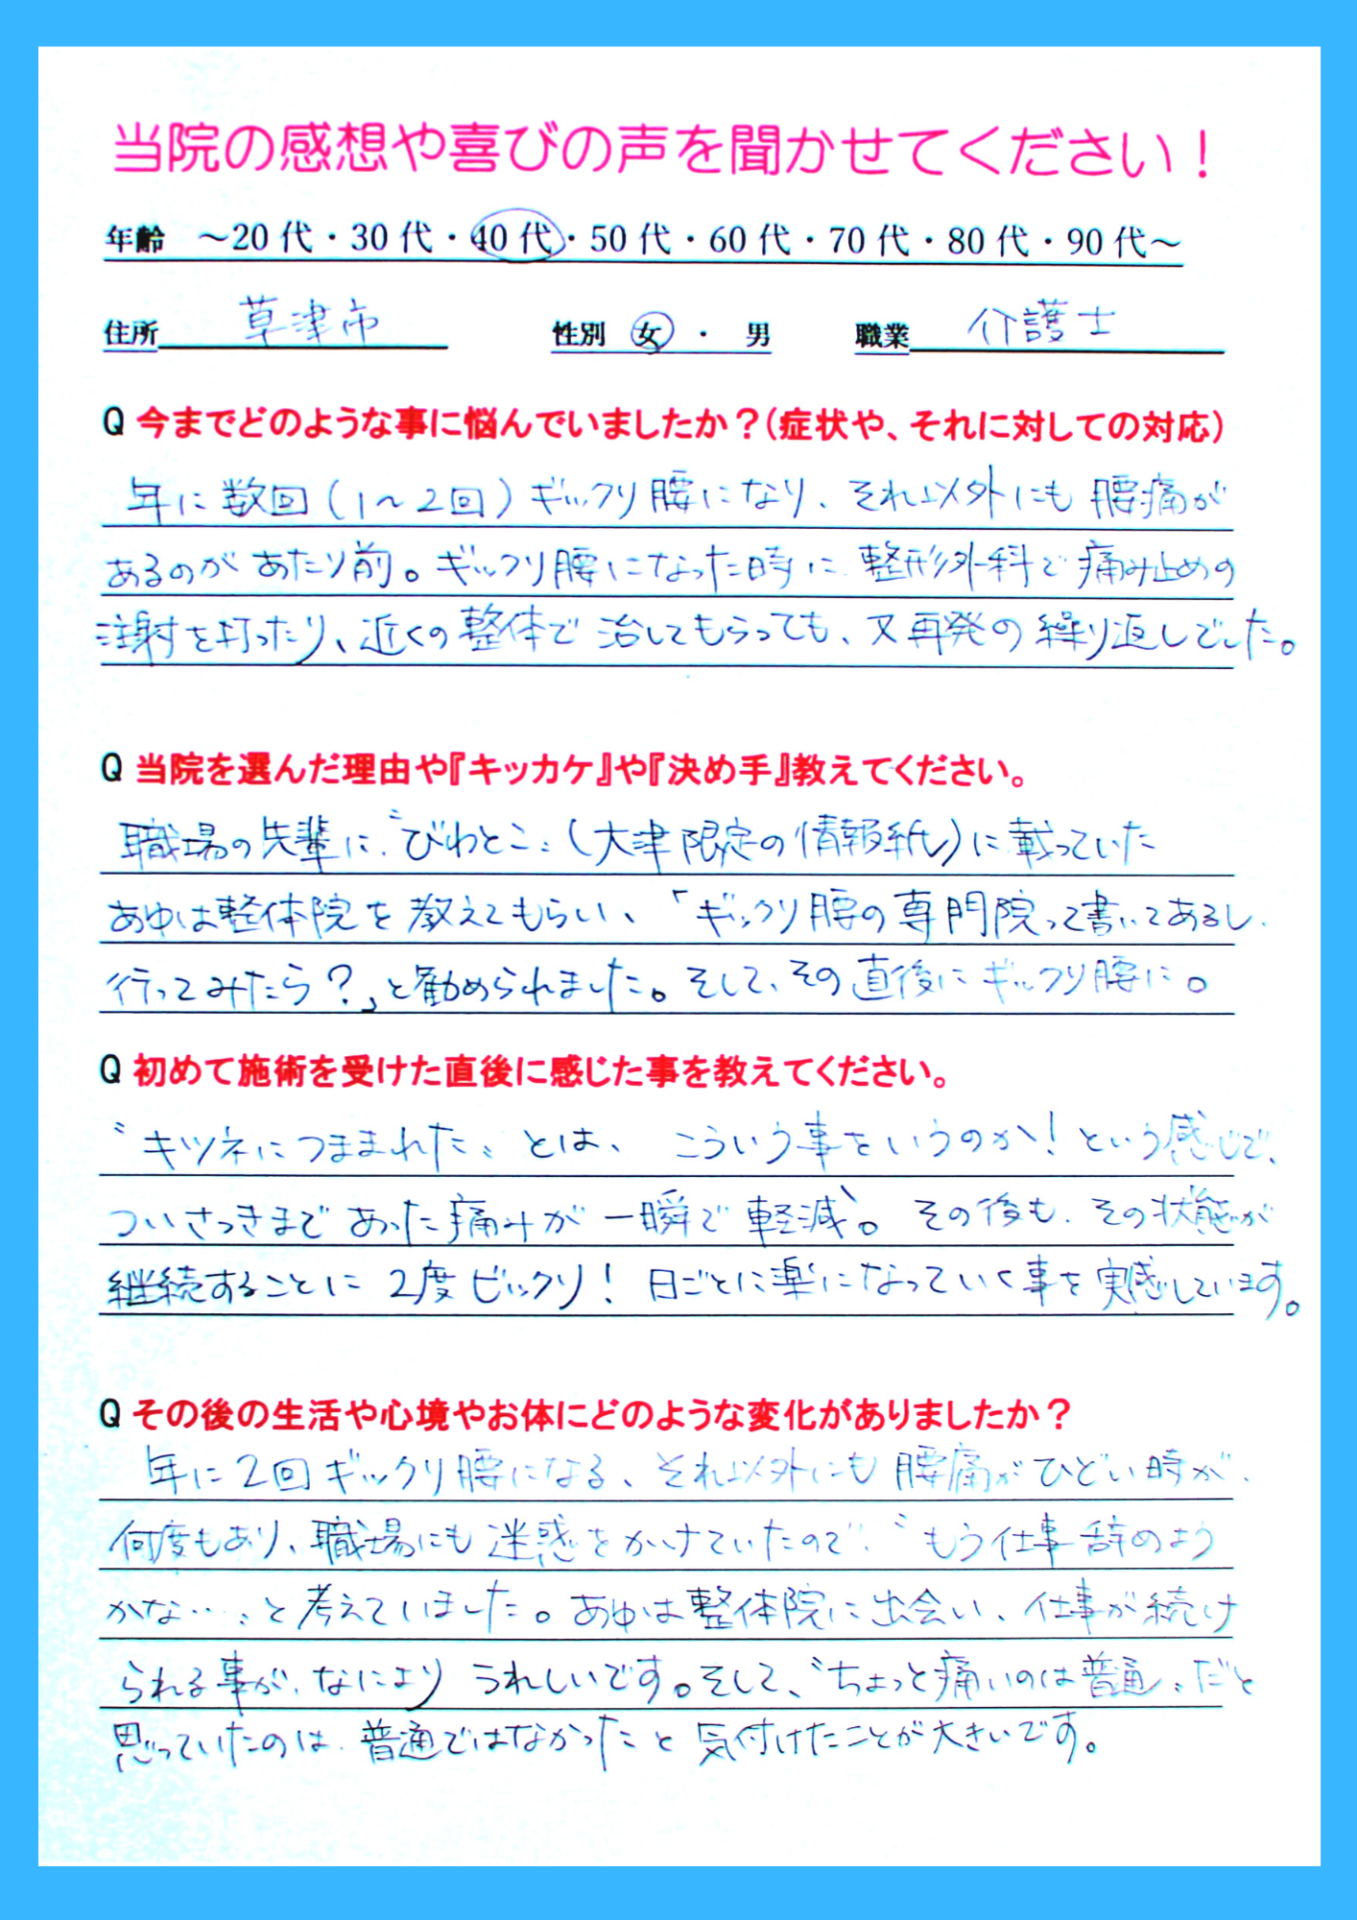 当院の感想や喜びの声を聞かせてください！
年齢 ～20代・30代・40代・50代・60代・70代・80代・90代～
住所 草津市 性別 女 ・ 男 職業 介護士
Q 今までどのような事に悩んでいましたか？（症状や、それに対しての対応）
年に数回（1～2回）ギックリ腰になり、それ以外にも腰痛が
あるのがあたり前。ギックリ腰になった時に、整形外科で痛み止めの
注射を打ったり、近くの整体で治してもらっても、又再発の繰り返しでした。
Q 当院を選んだ理由や『キッカケ』や『決め手』教えてください。
職場の先輩に、〝びわとこ〟（大津限定の情報紙）に載っていた
あゆは整体院を教えてもらい、「ギックリ腰の専門院って書いてあるし、
行ってみたら？」と勧められました。そして、その直後にギックリ腰に。
Q 初めて施術を受けた直後に感じた事を教えてください。
〝キツネにつままれた〟とは、こういう事をいうのか！という感じで、
ついさっきまであった痛みが一瞬で〝軽減〟。その後も、その状態が
継続することに2度ビックリ！日ごとに楽になっていく事を実感しています。
Q その後の生活や心境やお体にどのような変化がありましたか？
年に2回ギックリ腰になる、それ以外にも腰痛がひどい時が、
何度もあり、職場にも迷惑をかけていたので、〝もう仕事辞めよう
かな…〟と考えていました。あゆは整体院に出会い、仕事が続け
られる事が、なによりうれしいです。そして、〝ちょっと痛いのは普通〟だと
思っていたのは、普通ではなかったと気付けたことが大きいです。